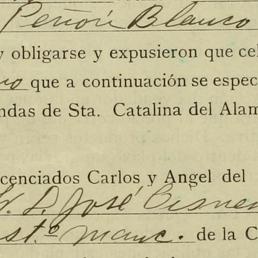 Peñon Blanco
y obligarse y expusieron que cel
que a continuación se espec
ndas de Sta. Catalina del Alam
cenciados Carlos y Angel del
José Cisne
de la C